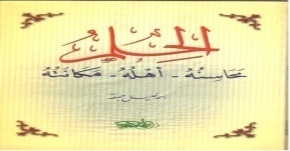 الحِلم
محاسنُهُ - أهلُهُ - مكانتُهُ